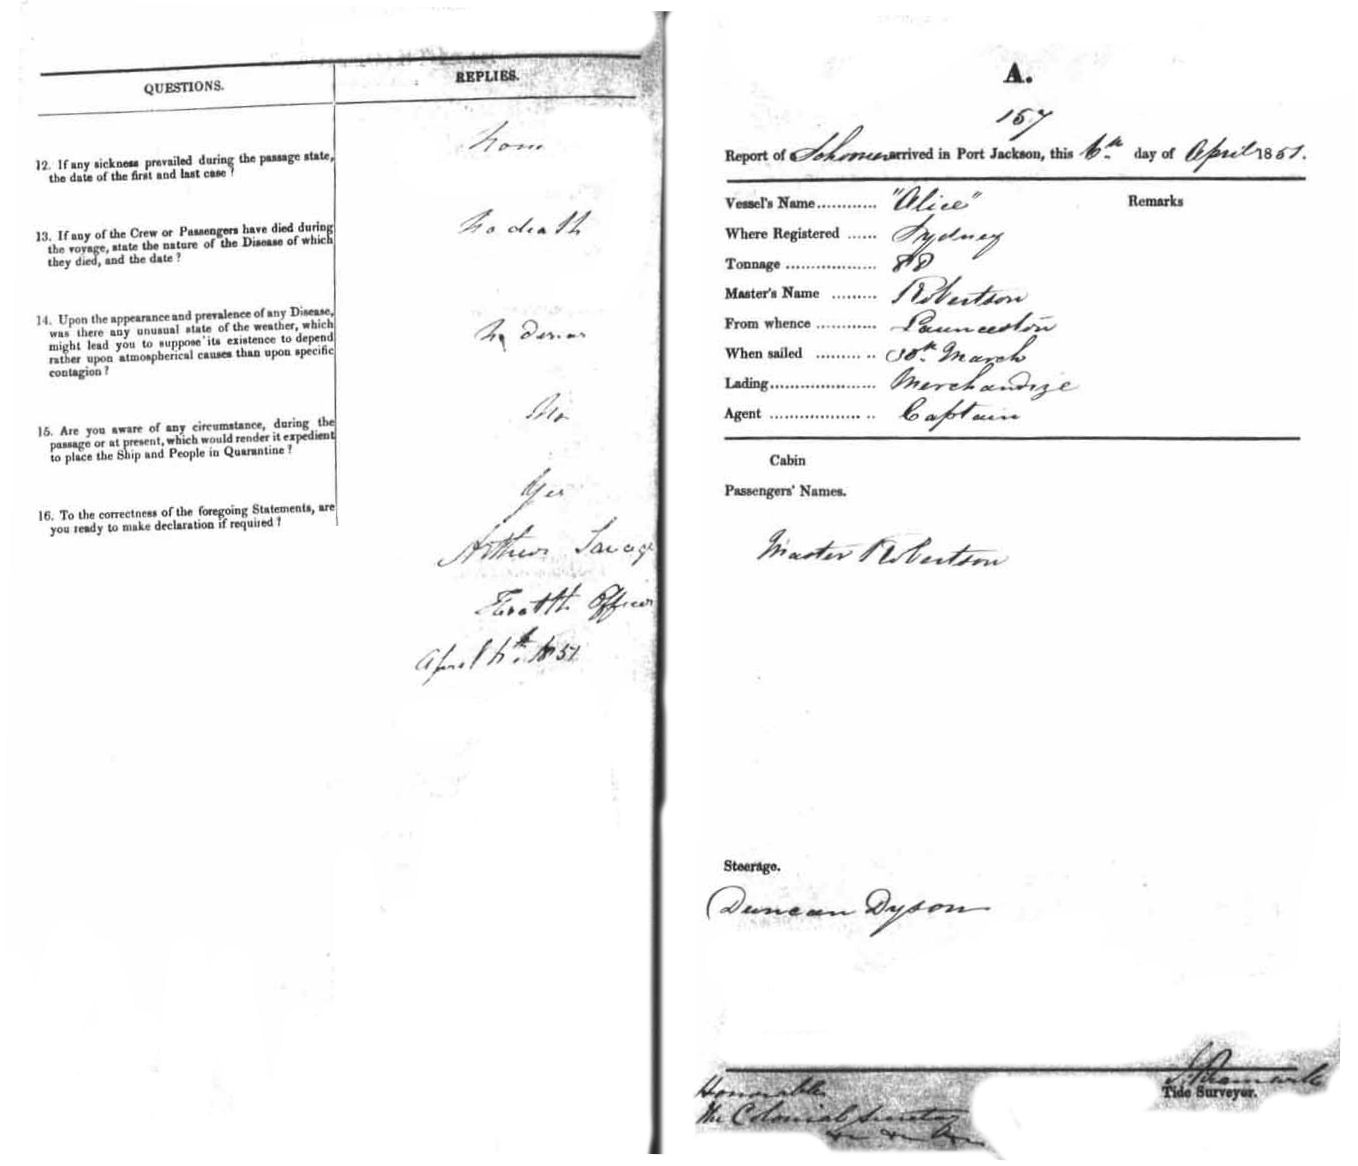 QUESTIONS.
REPLIES.
12. If any sickness prevailed during the passage state,
the date of the first and last case ?
None
13. If any of the Crew or Passengers have died during
the voyage, state the nature of the Disease of which
they died, and the date ?
No death
14. Upon the appearance and prevalence of any Disease,
was there any unusual state of the weather, which
might lead you to suppose its existence to depend
rather upon atmospherical causes than upon specific
contagion ?
No
15. Are you aware of any circumstance, during the
passage or at present, which would render it expedient
to place the Ship and People in Quarantine ?
No
16. To the correctness of the foregoing Statements, are
you ready to make declaration if required ?
Yes
Arthur Savage
Health Officer
April 6th. 1851
A.
157
Report of Schooner arrived in Port Jackson, this 6th. day of April 1851.
Vessel's Name............ "Alice"
Remarks
Where Registered ...... Sydney
Tonnage .................. 88
Master's Name ......... Robertson
From whence ............ Launceston
When sailed ......... .. 30th. March
Lading..................... Merchandize
Agent .................. .. Captain
Cabin
Passengers' Names.
Master Robertson
Steerage.
Duncan Dyson
Tide Surveyor.
Honorable
The Colonial Secretary